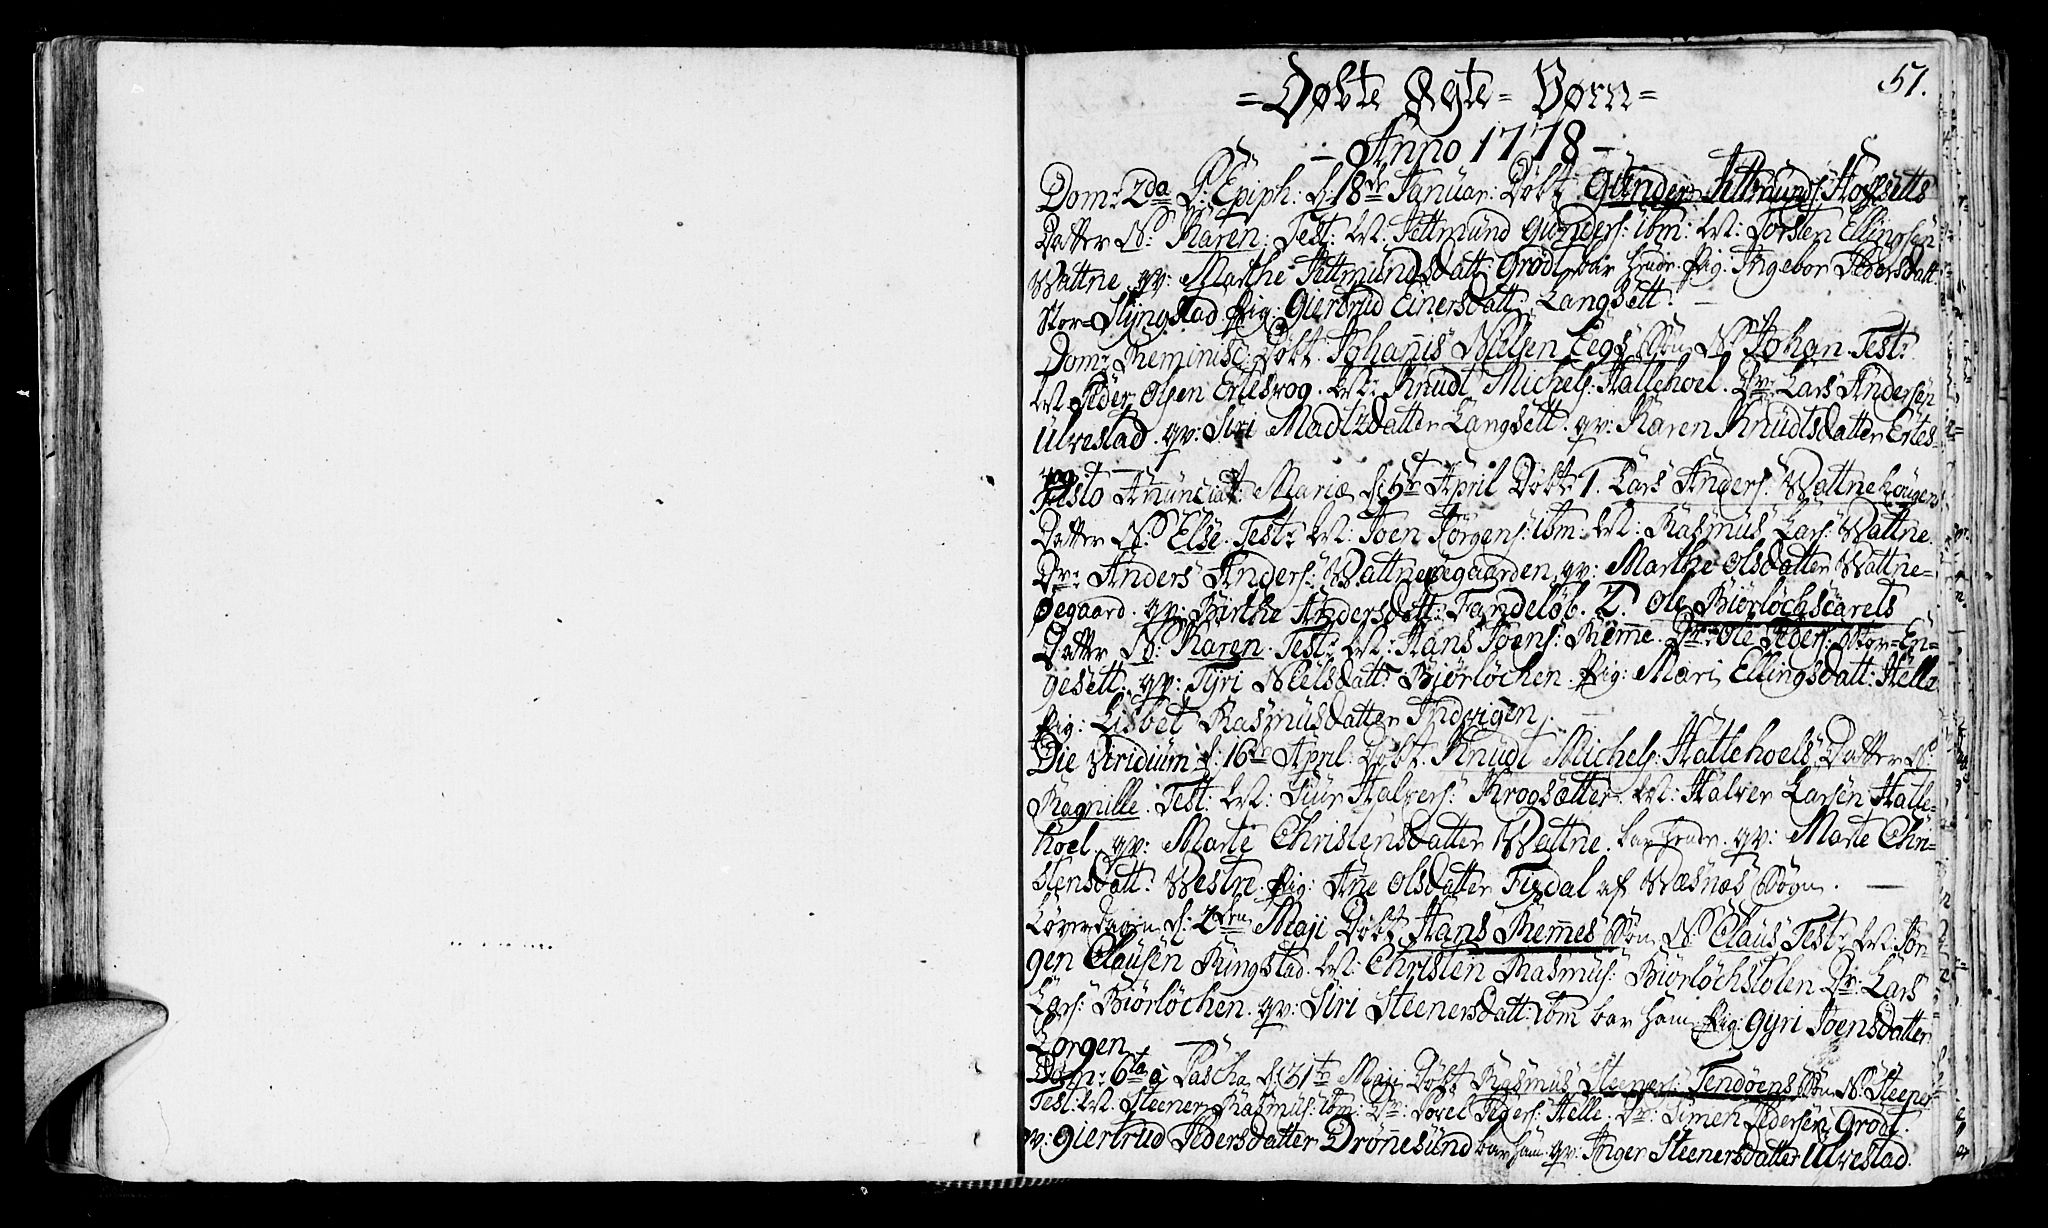 51.
= Døbte Ægte= Børn =
- Anno 1778 -
Dom: 2da P: Epiph: d: 18de Januar: Døbt Gunder Jettmunds: Hofsetts
Datter N: Karen. Test: M: Jettmund Gunders: ibm: M: Torsten Ellingsen
Wattne. qv: Marthe Jettmundsdatt: Grodt bar hende. Pig: Ingebor Pedersdatt:
Stor=Slyngstad. Pig: Giertrud Einersdatt: Langsett. -
Dom: Reminisc: Døbt Johanis Nilsen Eegs Søn N: Johan. Test:
M: Peder Olsen Ertesvog. M: Knudt Michels: Hallehoel. Dr: Lars Andersen
Ulvestad. qv: Siri Madtzdatter Langsett. qv: Karen Knudtsdatter Ertes
vog.
Festo Anunciat: Mariæ d: 5te April Døbt 1. Lars Anders: Wattnehougens
Datter N: Else. Test: M: Joen Jørgens: ibm: M: Rasmus Lars: Wattne.
Dr: Anders Anders: Wattneøegaarden. qv: Marthe Olsdatter Wattne=
Øegaard. qv: Birthe Andersdatt: Tandeløb. 2. Ole Biørlochscarets
Datter N: Karen. Test: M: Hans Joens: Remme. Dr: Ole Peders: Stor=En=
gesett. qv: Tyri Neelsdatt: Bjørlochen. Pig: Mari Ellingsdatt: Helle
Pig: Lisbet Rasmusdatter Indvigen. -
Die Viridium d: 16de April. Døbt. Knudt Michels: Hallehoels Datter N:
Ragnille. Test: M: Siur Halvers: Krogsætter. M: Halver Larsen Halle=
hoel. qv: Marte Christensdatter Wattne. bar hende. qv: Marte Chri=
stensdatt: Westre. Pig: Ane Olsdatter Fixdal af Wæsnæs Sogn. -
Løverdagen d: 2den Maji Døbt Hans Remes Søn N: Claus Test: M: Jør
gen Clausen Ringstad. M: Christen Rasmus: Biørlochstølen Dr: Lars
Lars: Biørlochen. qv: Siri Steenersdatt: ibm bar ham Pig: Gyri Joensdatter
Lorgen
Dom: 6ta a Pascha d: 31te Maji Døbt Rasmus Steeners: Tendøens Søn N: Steener
Test: M. Steener Rasmus: ibm: Dr: Povel Peders: Helle. Dr: Simen Pedersen Grodt.
qv: Giertrud Pedersdatter Drønesund bar ham. qv: Inger Steenersdatter Ulvestad.